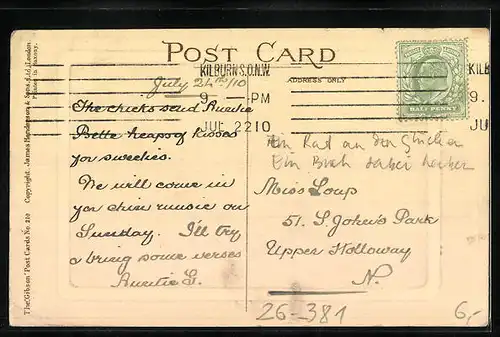 POST CARD
KILBURN S.O. N.W.
9. PM
JUL 22 10
KILB
9.
JU
ADDRESS ONLY
HALFPENNY
July 24th /10
The chicks send Auntie
Belle heaps of kisses
for sweeties.
We will come in
for music on
Sunday. I'll try
a bring some verses
Auntie L.
Ein Rad an den
Ein dabei
Miss Loup
51. St John's Park
Upper Holloway
N.
26-381
6,-
The "Gibson" Post Cards No. 210 Copyright. James Henderson & Sons, Ltd., London.